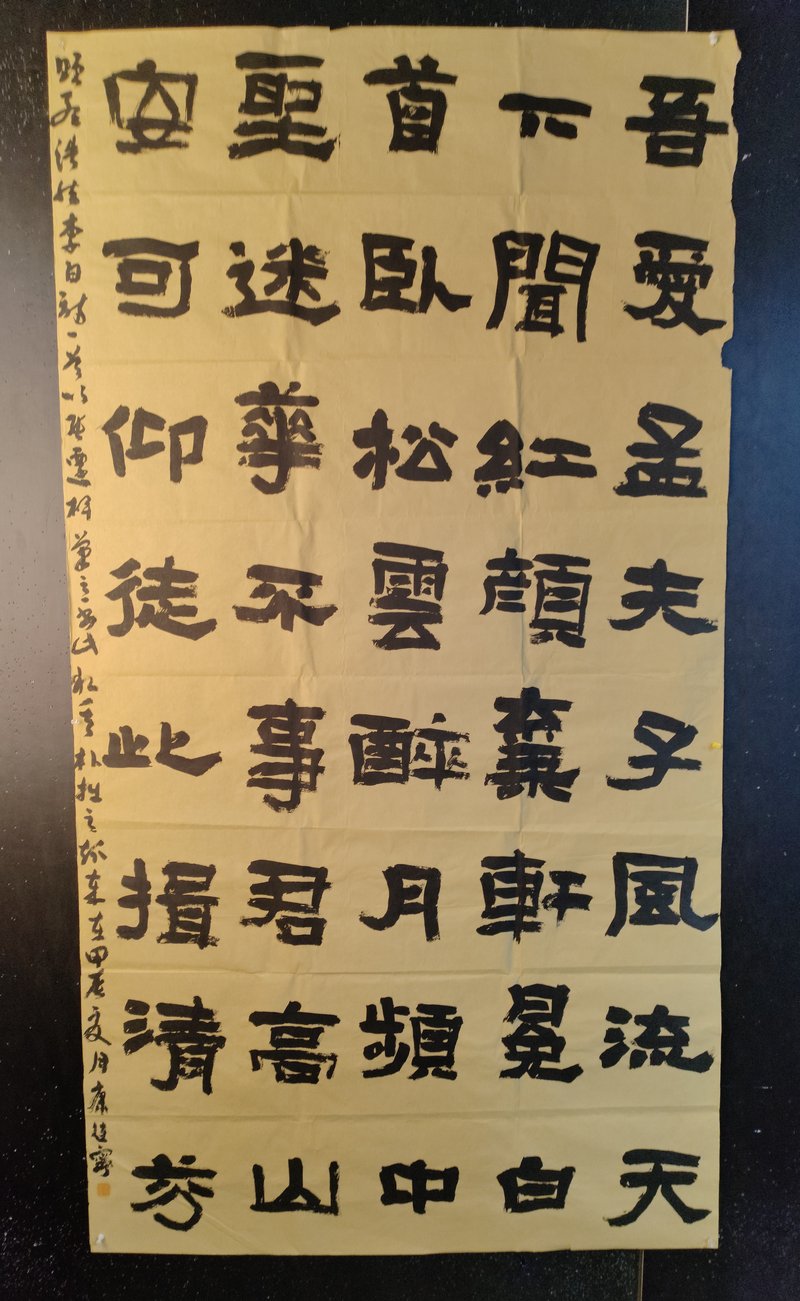 吾愛孟夫子風流天
下聞紅顏棄軒冕白
首臥松雲醉月頻中
聖迷華不事君高山
安可仰徒此揖清芬
浩然李白詩一首以張遷碑筆意書此朴拙之甲辰夏月康